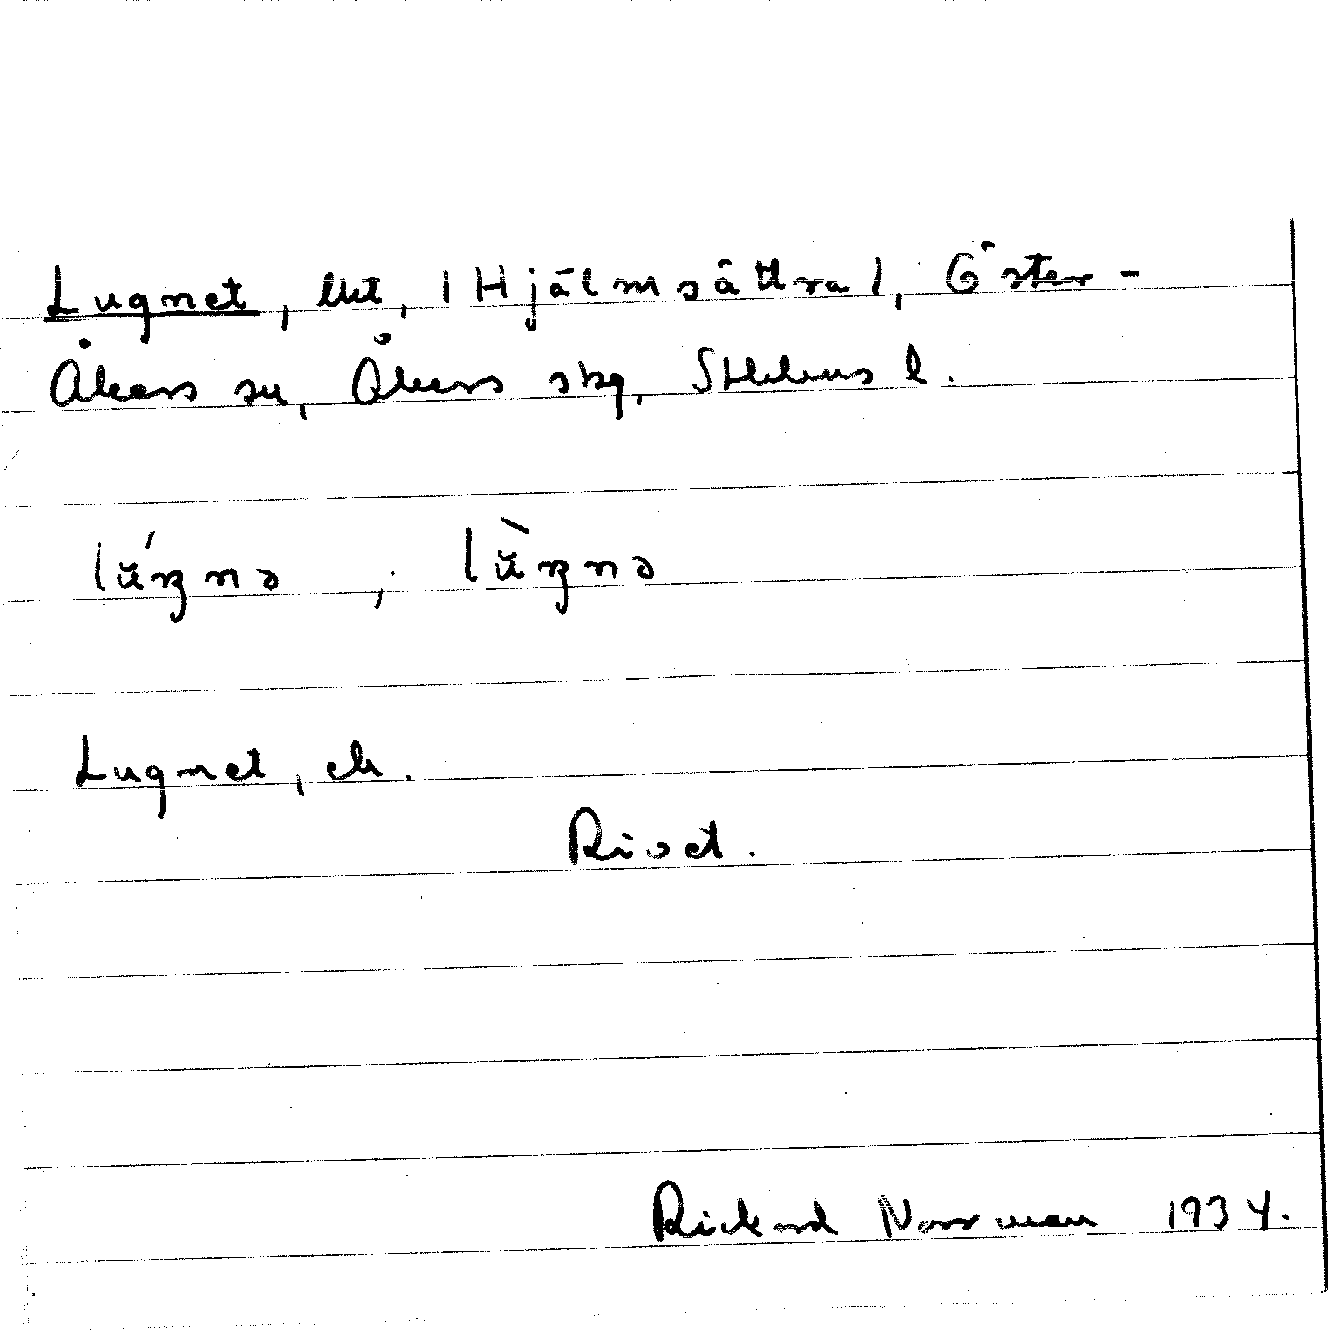 Lugnet, lht, i Hjälmsättra l, Öster-
Åkers sn, Åkers skg, Sthlms l.
lúŋnə ; lùŋnə
Lugnet, ek.
Rivet.
Rickard Norrman 1934.